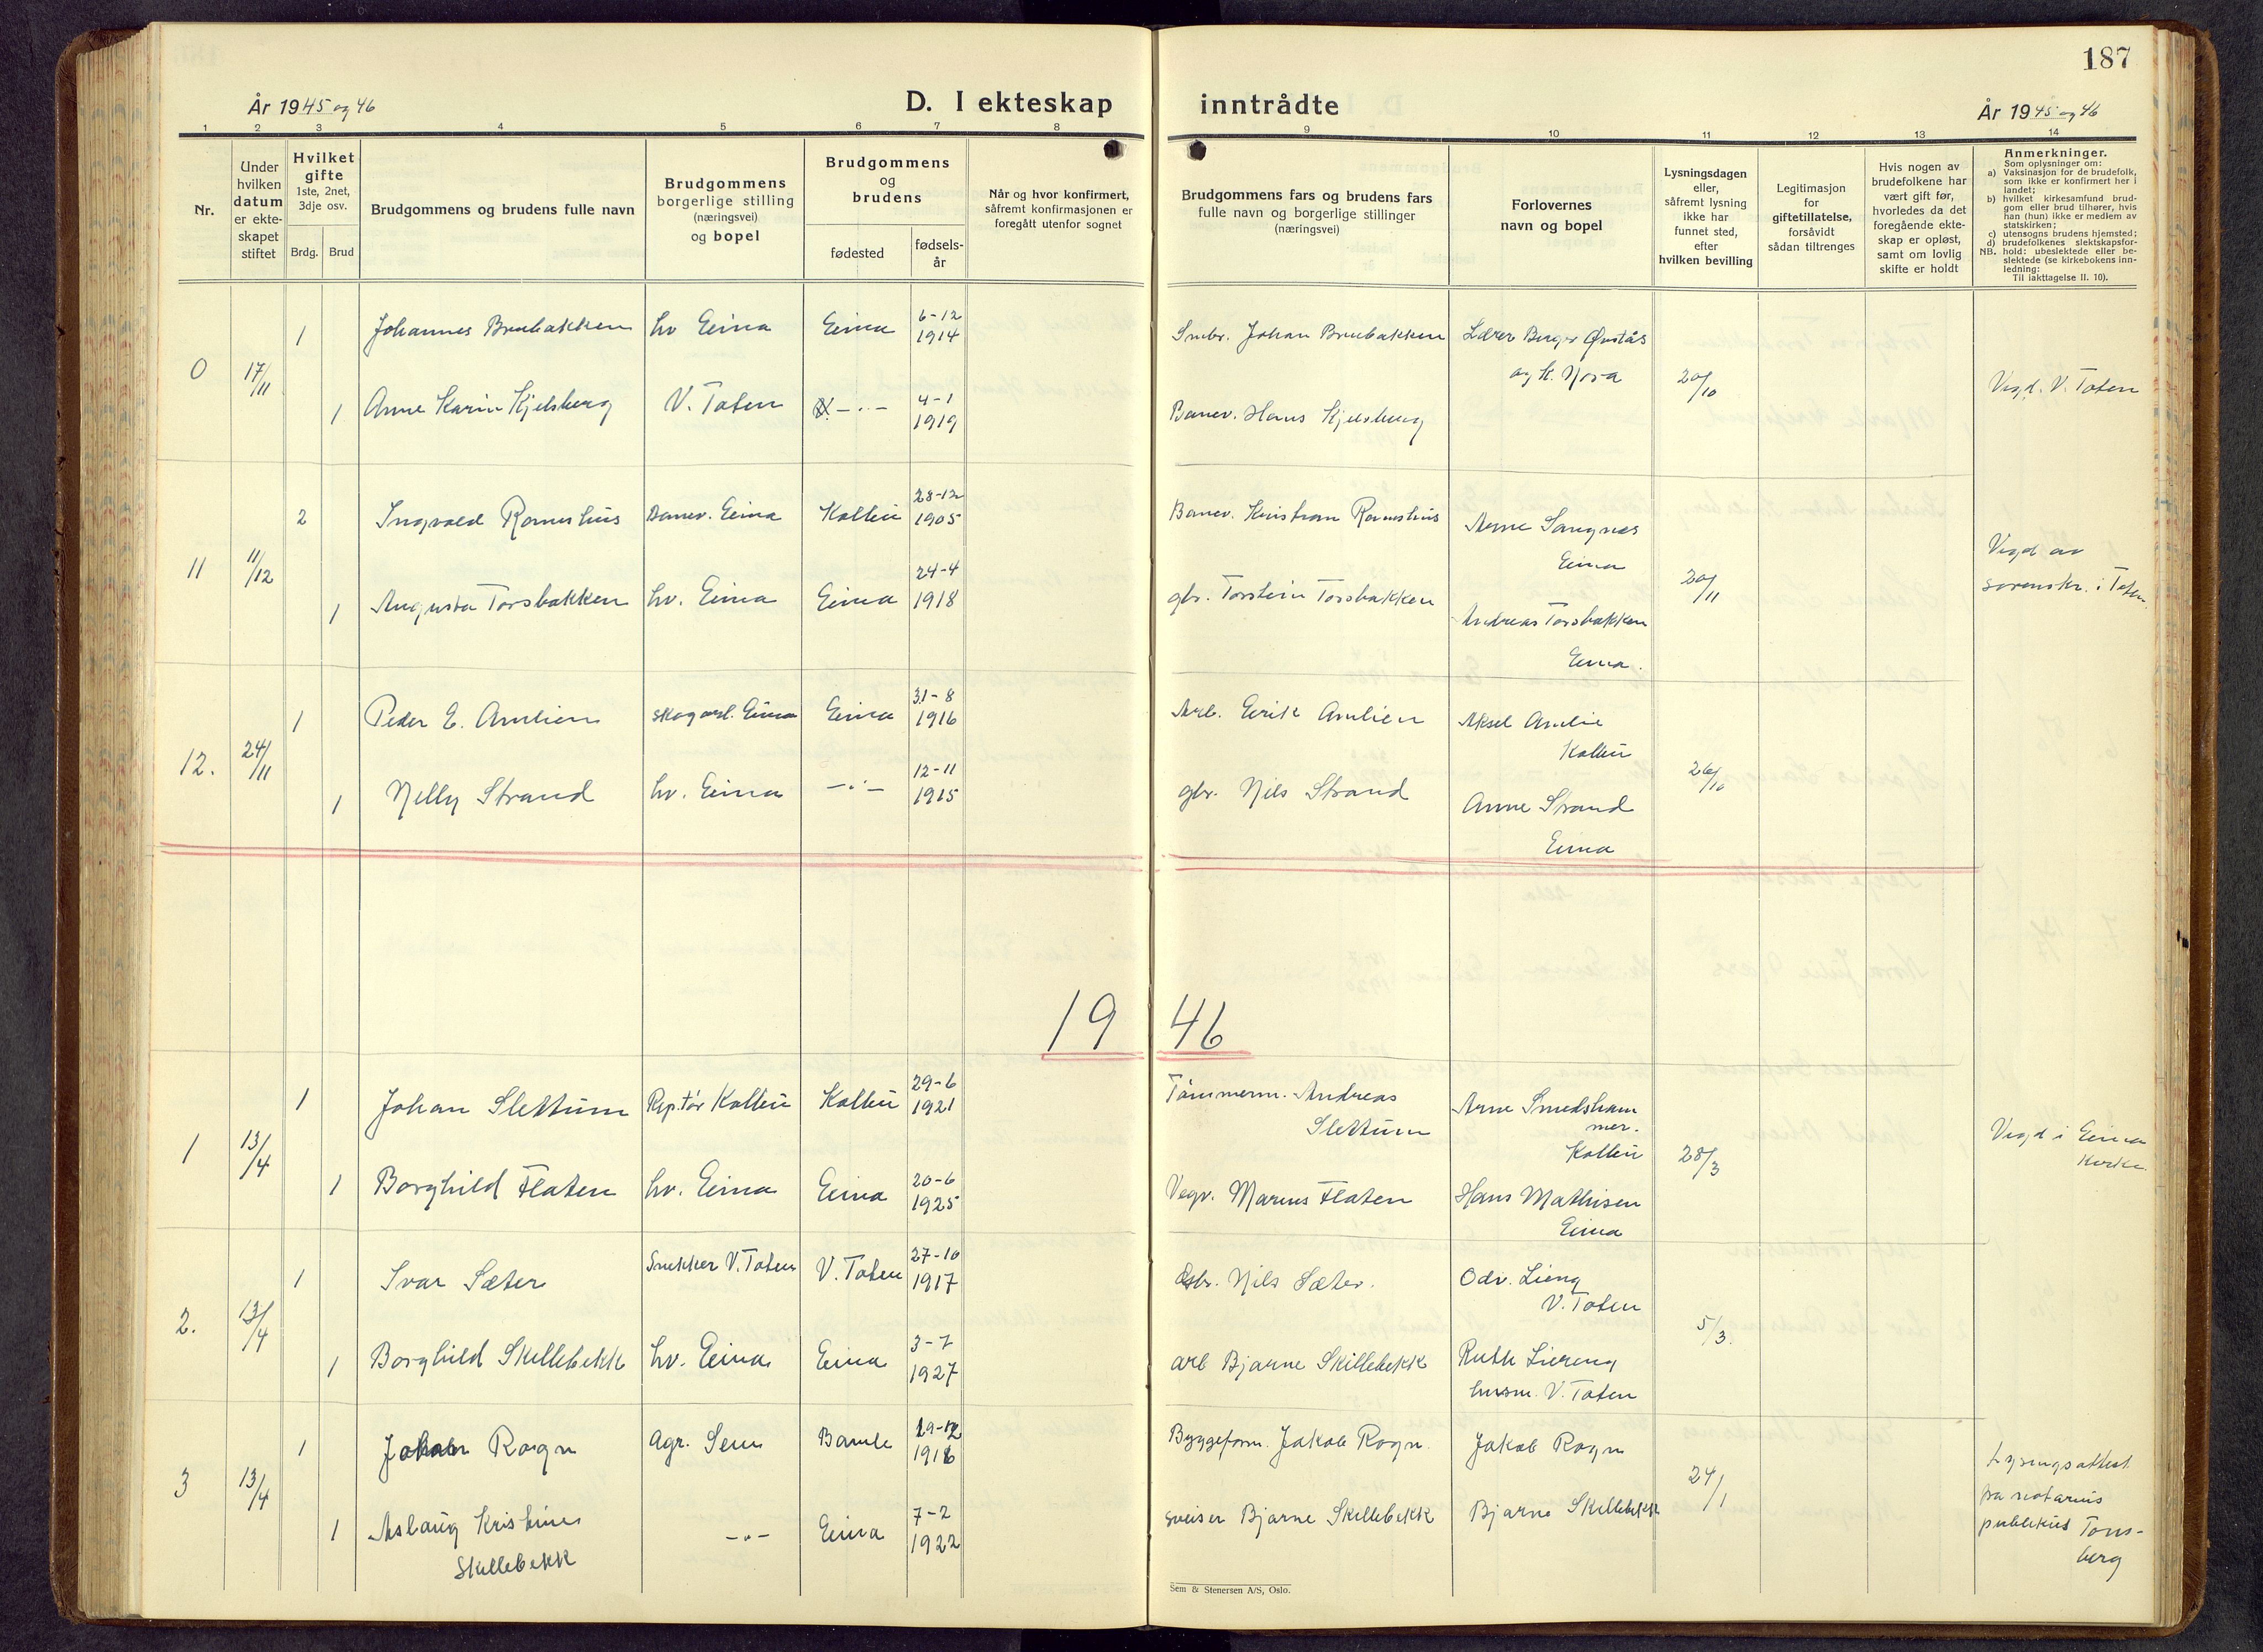 187
År 1945 og 46
D. I ekteskap inntrådte
År 1945 og 46
1 2 3 4 5 6 7 8 9 10 11 12 13 14
Nr.
Under
hvilken
datum
er ekte-
skapet
stiftet
Hvilket
gifte
1ste, 2net,
3dje osv.
Brdg. Brud
Brudgommens og brudens fulle navn
Brudgommens
borgerlige stilling
(næringsvei)
og bopel
Brudgommens
og
brudens
fødested
fødsels-
år
Når og hvor konfirmert,
såfremt konfirmasjonen er
foregått utenfor sognet
Brudgommens fars og brudens fars
fulle navn og borgerlige stillinger
(næringsvei)
Forlovernes
navn og bopel
Lysningsdagen
eller,
såfremt lysning
ikke har
funnet sted,
efter
hvilken bevilling
Legitimasjon
for
giftetillatelse,
forsåvidt
sådan tiltrenges
Hvis nogen av
brudefolkene har
vært gift før,
hvorledes da det
foregående ekte-
skap er opløst,
samt om lovlig
skifte er holdt
Anmerkninger.
Som oplysninger om:
a) Vaksinasjon for de brudefolk,
som ikke er konfirmert her i
landet;
b) hvilket kirkesamfund brud-
gom eller brud tilhører, hvis
han (hun) ikke er medlem av
statskirken;
c) utensogns brudens hjemsted;
d) brudefolkenes slektskapsfor-
NB. hold: ubeslektede eller be-
slektede (se kirkebokens inn-
ledning:
Til iakttagelse II. 10).
0 17/11
1 Johannes Brubakken hv Eina Eina 6-12 1914 Smbr. Johan Brubakken Lærer Birger
og fr. Nora 20/10 Vigd. V. Toten
1 Anne Karin Kjelsberg V. Toten -"- 4-1 1919 Banev. Hans Kjelsberg
11 11/12
2 Ingvald Romshus Banev. Eina Kolbu 28-12 1905 Banev. Kristian Romshus Arne Sangnes
Eina 20/11 Vigd av
sorenskr. i Toten.
1 Augusta Torsbakken hv. Eina Eina 24-4 1918 gbr. Torstein Torsbakken Andreas Torsbakken
Eina.
12. 24/11
1 Peder E. Amlien skogarb. Eina Eina 31-8 1916 Arb. Eirik Amlien Aksel Amlie
Kolbu 26/10
1 Nelly Strand hv. Eina -"- 12-11 1915 gbr. Nils Strand Anne Strand
Eina
1946
1 13/4
1 Johan Slettum Rep.tør Kolbu Kolbu 29-6 1921 Tømmerm. Andreas
Slettum Arne Smedsham
mer.
Kolbu 28/3 Vigd i Eina
Kirke.
1 Borghild Flaten hv. Eina Eina 20-6 1925 Vegv. Marius Flaten Hans Mathisen
Eina
2. 13/4
1 Ivar Sæter Snekker V. Toten V. Toten 27-10 1917 Gbr. Nils Sæter. Odv. Lieng
V. Toten 5/3.
1 Borghild Skillebekk hv. Eina Eina 3-7 1927 arb Bjarne Skillebekk Ruth Liereng
husm. V. Toten
3 13/4
1 Johan Rogn agr. Sem Bamle 29-12 1918 Byggeform. Jakob Rogn. Jakob Rogn 24/1 Lysingsattest
fra notarius
publikus Tøns-
berg
1 Aslaug Kristine
Skillebekk -"- Eina 7-2 1922 sveiser Bjarne Skillebekk Bjarne Skillebekk
Sem & Stenersen A/S, Oslo.